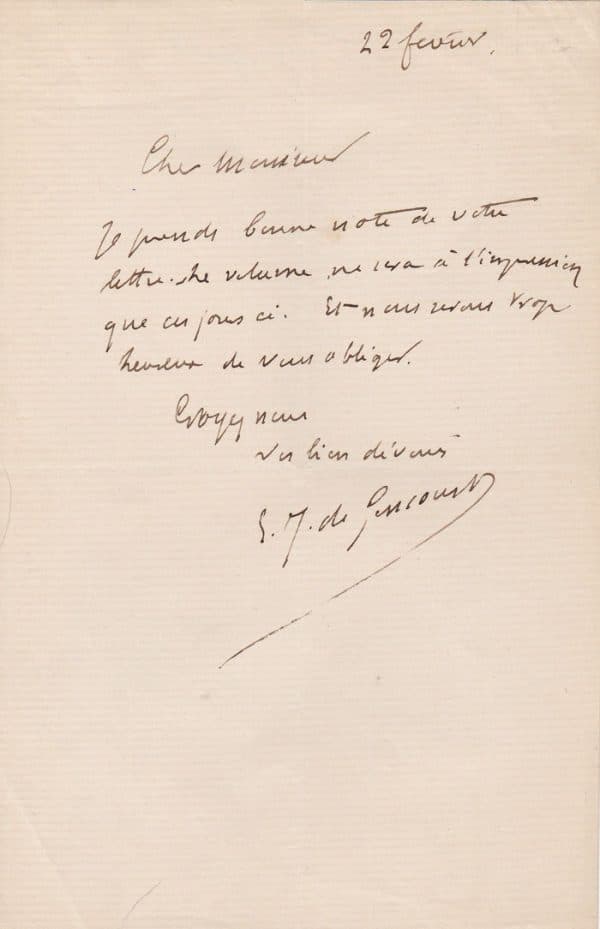 22 fevrier.
Cher Monsieur
Je prends bonne note de votre
lettre. Le volume ne sera à l'impression
que ces jours ci. Et nous serons trop
heureux de vous obliger.
Croyez nous
vos bien dévoués
E. J. de Goncourt